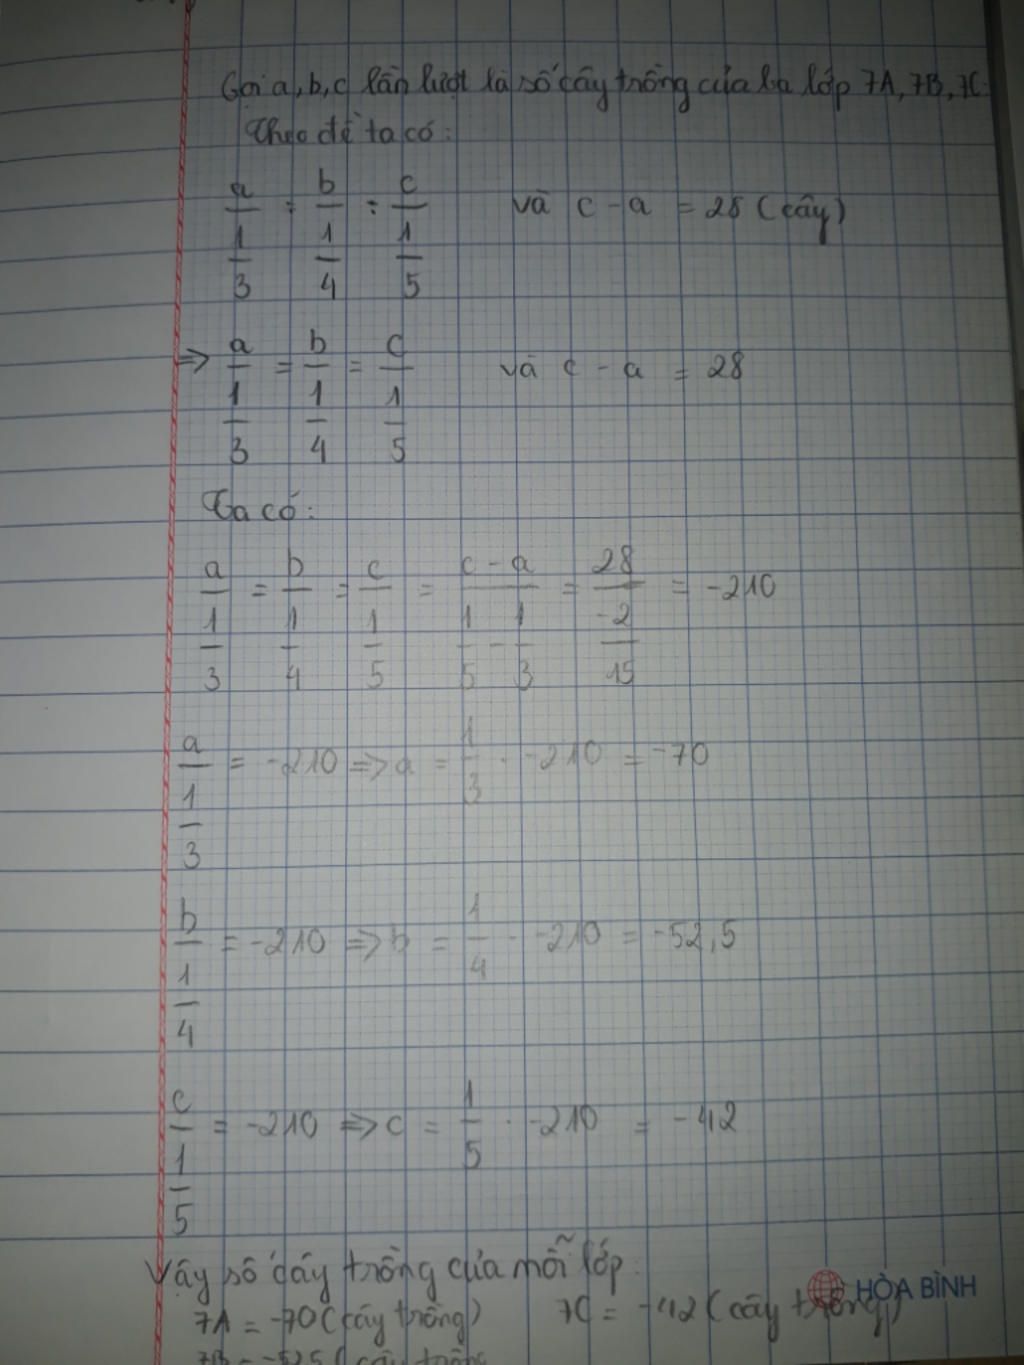 Gọi a, b, c lần lượt là số cây trồng của ba lớp 7A, 7B, 7C.
Theo đề ta có:
a/(1/3) = b/(1/4) = c/(1/5) và c - a = 28 (cây)
=> a/(1/3) = b/(1/4) = c/(1/5) và c - a = 28
Ta có:
a/(1/3) = b/(1/4) = c/(1/5) = (c - a)/(1/5 - 1/3) = 28/(-2/15) = -210
a/(1/3) = -210 => a = 1/3 . -210 = -70
b/(1/4) = -210 => b = 1/4 . -210 = -52,5
c/(1/5) = -210 => c = 1/5 . -210 = -42
Vậy số cây trồng của mỗi lớp:
7A = -70 (cây trồng) 7C = -42 (cây trồng)
HÒA BÌNH